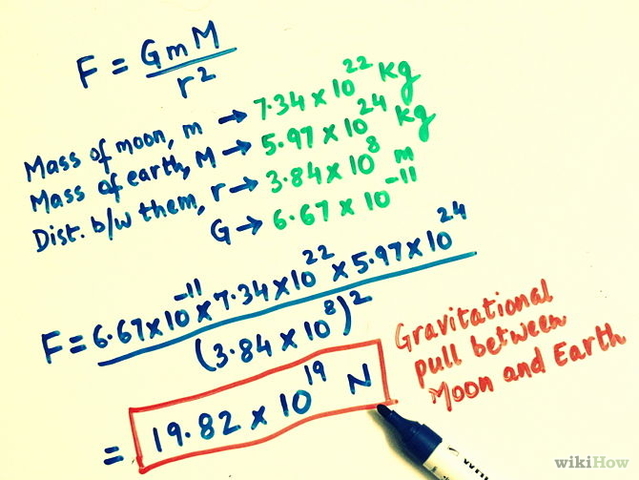 F = GmM / r²
Mass of moon, m → 7.34 x 10²² kg
Mass of earth, M → 5.97 x 10²⁴ kg
Dist. b/w them, r → 3.84 x 10⁸ m
G → 6.67 x 10⁻¹¹
F = 6.67x10⁻¹¹x7.34x10²²x5.97x10²⁴ / (3.84 x 10⁸)²
= 19.82 x 10¹⁹ N
Gravitational
pull between
Moon and Earth
wikiHow